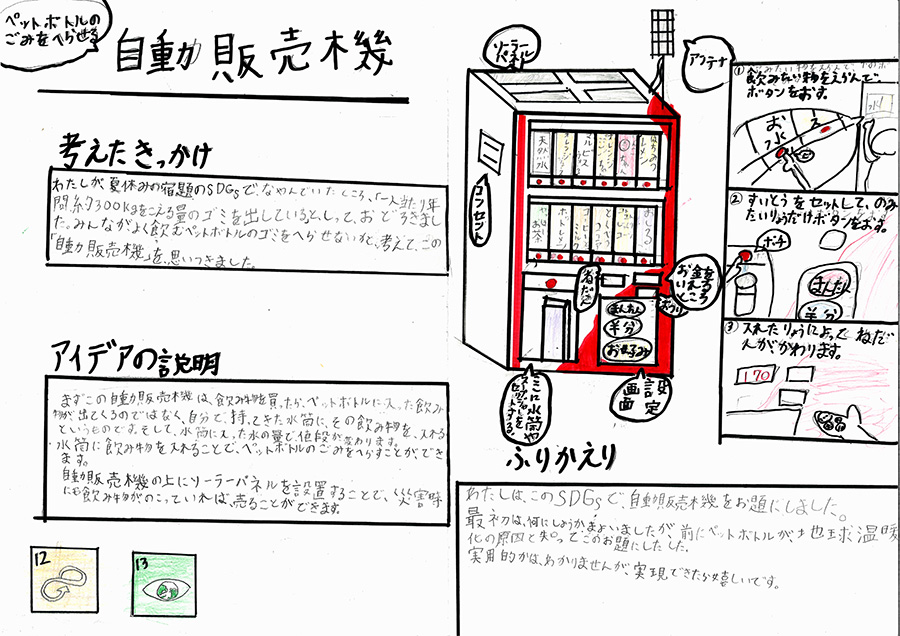 ペットボトルの
ごみをへらせる
自動販売木幾
考えたきっかけ
わたしが夏休みの宿題のSDGsで、なやんでいたところ、「一人当たり1年
間約300kgをこえる量のゴミを出している」としって、おどろきまし
た。みんながよく飲むペットボトルのゴミをへらせないかと、考えて、この
「自動販売機」を、思いつきました。
アイデアの説明
まずこの自動販売機は、飲み物を買ったら、ペットボトルに入った飲み
物が出てくるのではなく、自分で、持ってきた水筒に、その飲み物を、入れる
というものです。そして、水筒に入った水の量で、値段が変わります。
水筒に飲み物を入れることで、ペットボトルのごみをへらすことが、でき
ます。
自動販売機の上にソーラーパネルを設置することで、災害時
にも飲み物がのこっていれば、売ることができます。
12
13
ソーラー
パネル
アンテナ
コンセント
天然水
お茶
省だん
お金を
入れる
ところ
まんたん
半分
おこのみ
設定
画面
ここに水筒や
① 飲みたい物をえらんで
ボタンをおす。
お水
② すいとうをセットして、のみ
たいりょうだけボタンをおす。
ポチ
まんたん
半分
③ 入れたりょうによって ねだ
んがかわります。
170
ふりかえり
わたしは、このSDGsで、自動販売木幾をお題にしました。
最初は、何にしようか、まよいましたが、前にペットボトルが、地球温暖
化の原因と知ってこのお題にしたした。
実用的かは、わかりませんが、実現できたら嬉しいです。